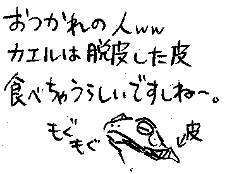 おつかれの人ww
カエルは脱皮した皮
食べちゃうらしいですしね〜。
もぐ
もぐ
皮